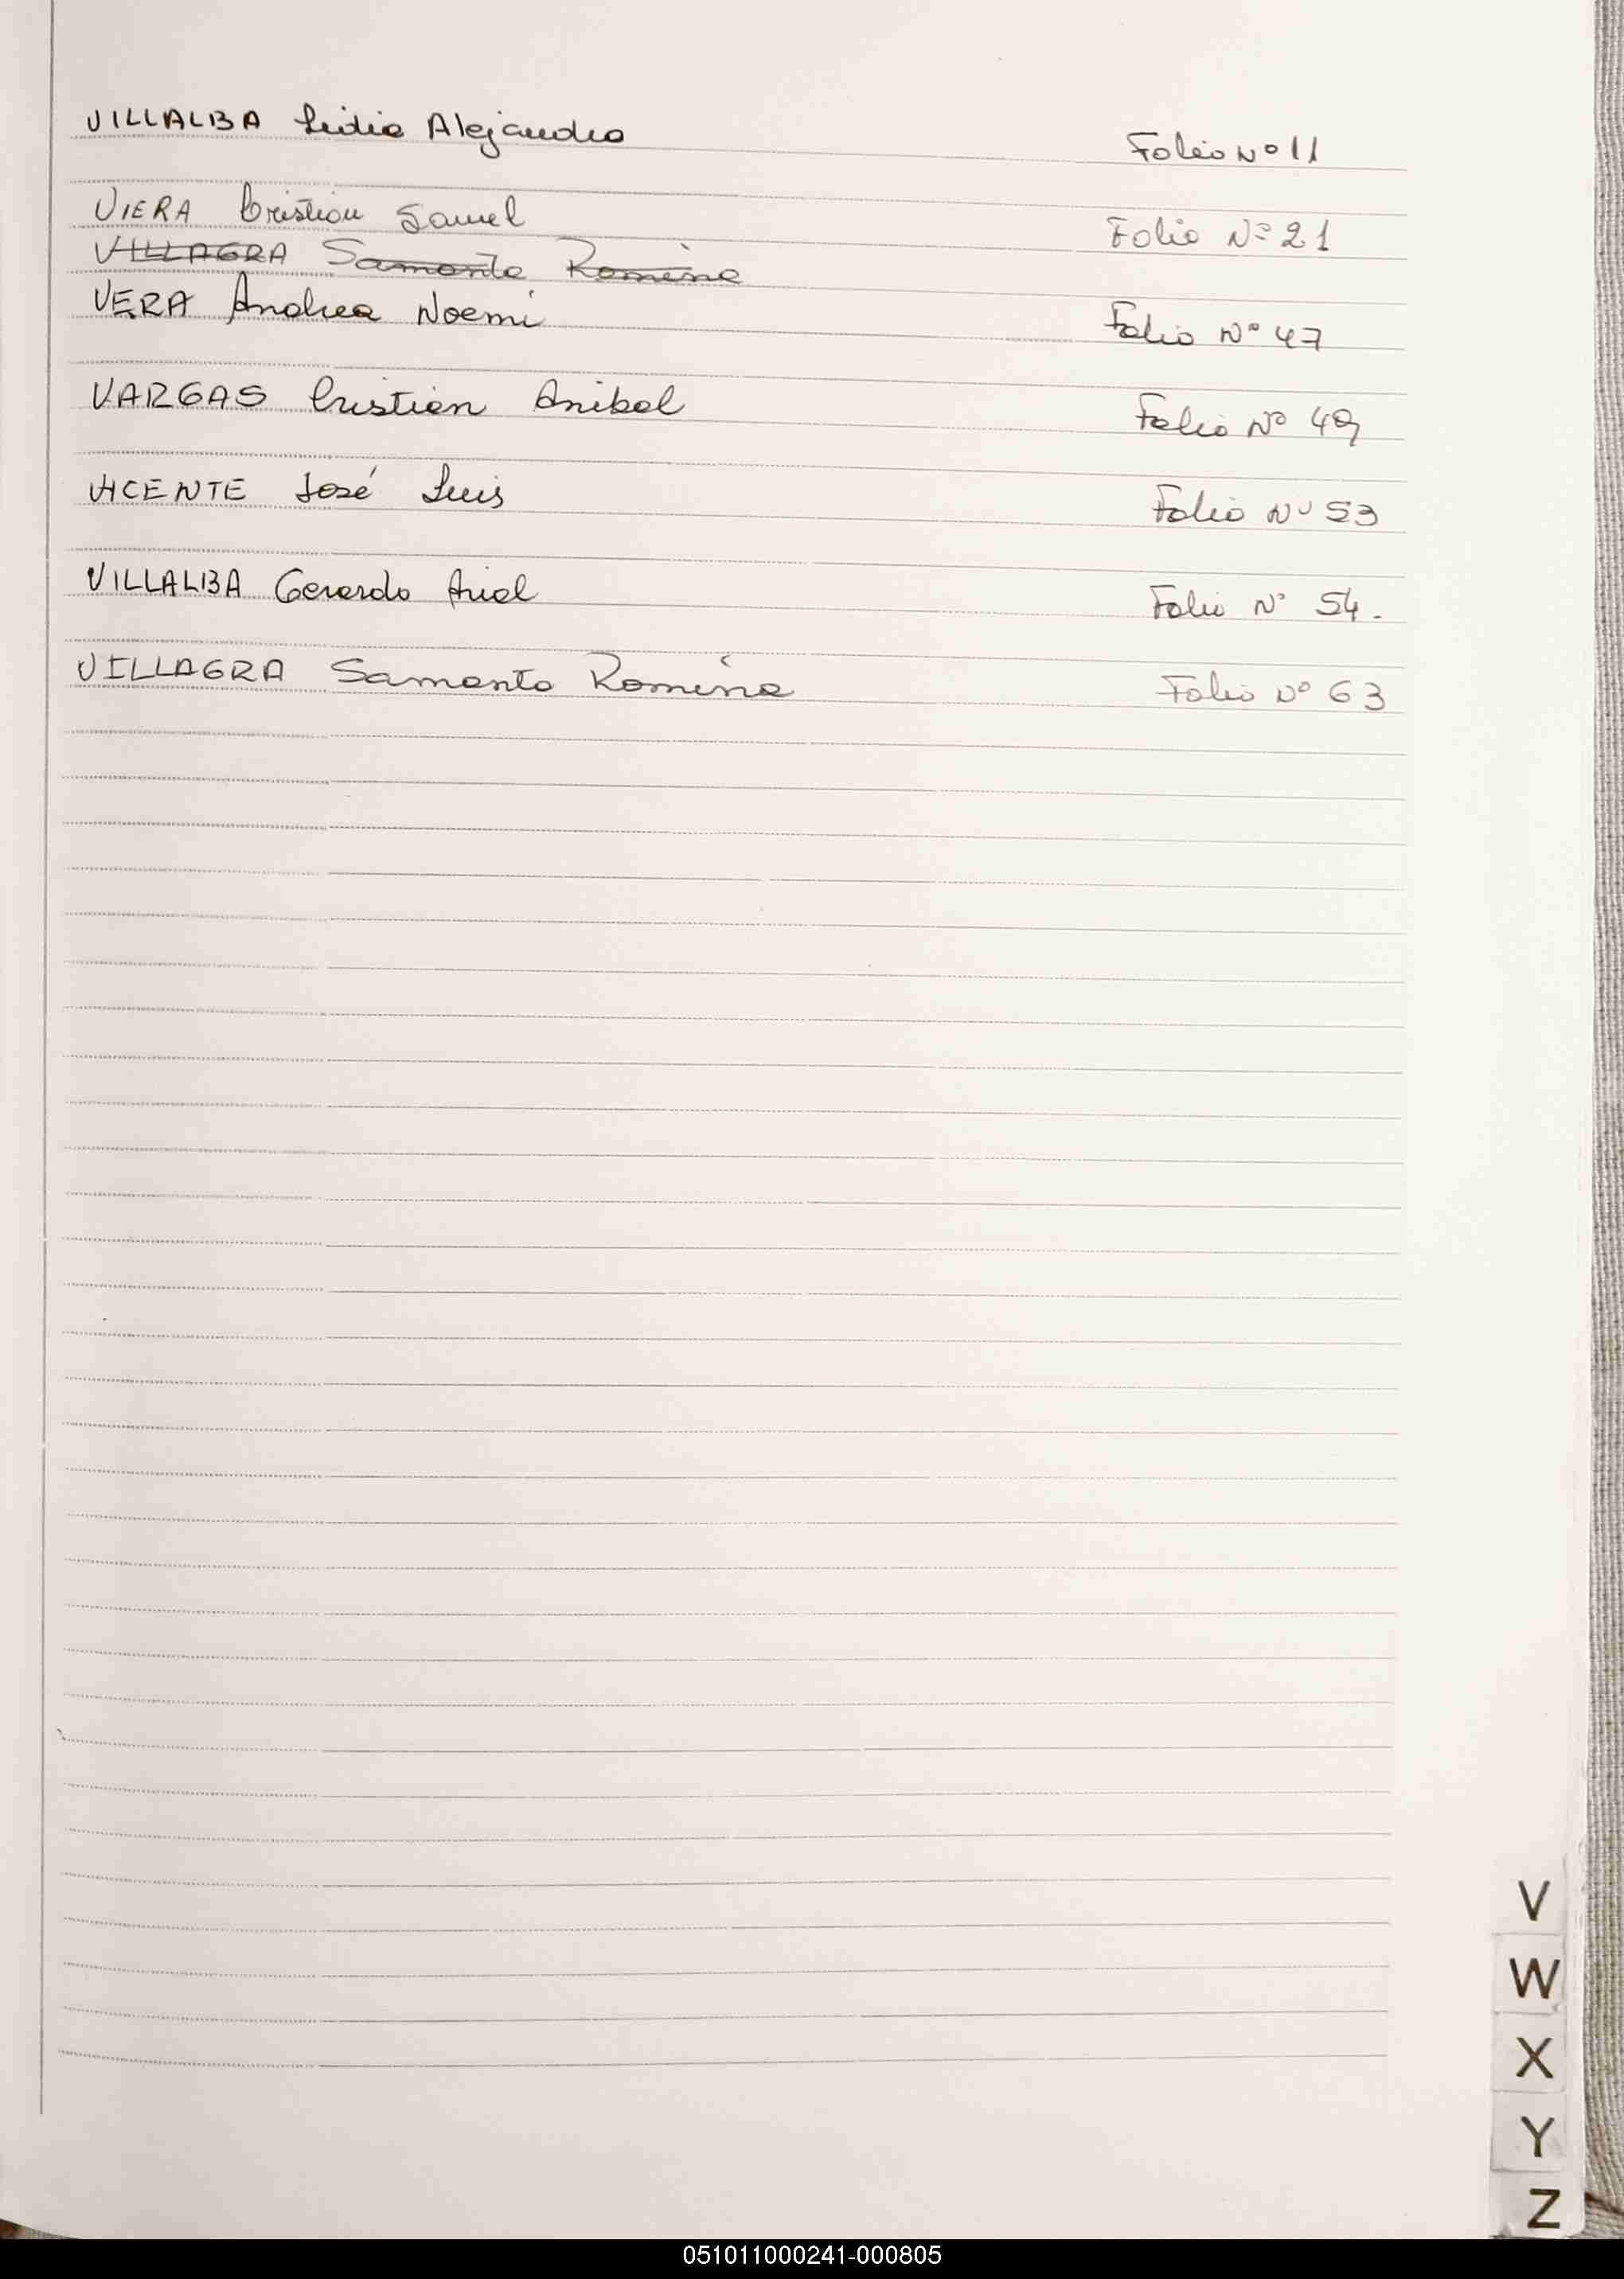 VILLALBA Lidia Alejandra Folio Nº 11
VIERA Cristian Samuel Folio Nº 21
VILLAGRA Samanta Romina
VERA Andrea Noemi Folio Nº 47
VARGAS Cristian Anibal Folio Nº 49
VICENTE José Luis Folio Nº 53
VILLALBA Gerardo Ariel Folio Nº 54.
VILLAGRA Samanta Romina Folio Nº 63
V
W
X
Y
Z
051011000241-000805